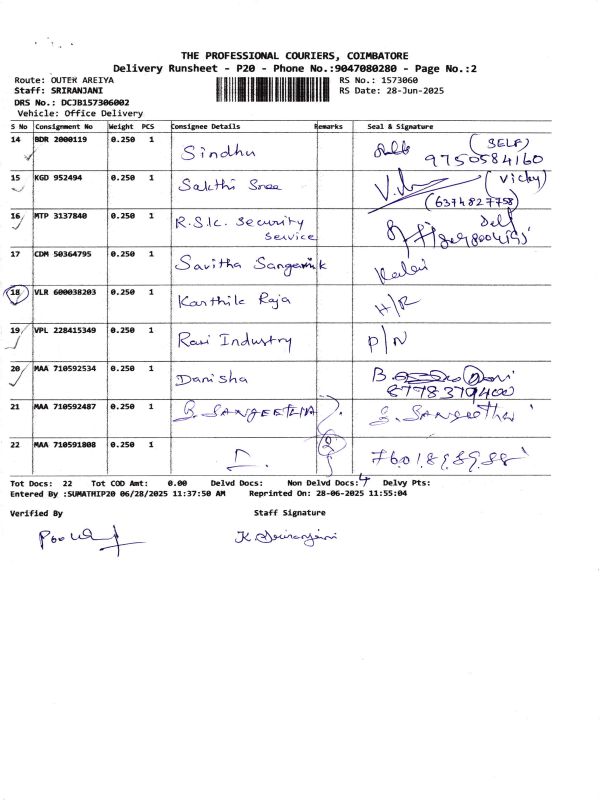 THE PROFESSIONAL COURIERS, COIMBATORE
Delivery Runsheet - P20 - Phone No.:9047080280 - Page No.:2
Route: OUTER AREIYA RS No.: 1573060
Staff: SRIRANJANI RS Date: 28-Jun-2025
DRS No.: DCJB157306002
Vehicle: Office Delivery
S No Consignment No Weight PCS Consignee Details Remarks Seal & Signature
14 BDR 2000119 0.250 1 Sindhu (SELF)
9750584160
15 KGD 952494 0.250 1 Sakthi Sree (Vicky)
(6374827758)
16 MTP 3137840 0.250 1 R.S.K. Security
Service
17 CDM 50364795 0.250 1 Savitha Kalai
18 VLR 600038203 0.250 1 Karthik Raja H/R
19 VPL 228415349 0.250 1 Ravi Industry P/N
20 MAA 710592534 0.250 1 Danisha B.
8778379400
21 MAA 710592487 0.250 1 S. SANGEETHA S. Sangeetha
22 MAA 710591808 0.250 1 2 7601898988
Tot Docs: 22 Tot COD Amt: 0.00 Delvd Docs: Non Delvd Docs: 4 Delvy Pts:
Entered By :SUMATHIP20 06/28/2025 11:37:50 AM Reprinted On: 28-06-2025 11:55:04
Verified By Staff Signature
K. Sriranjani